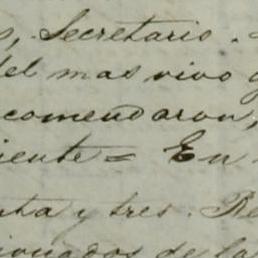 s, Secretario.
del mas vivo y
comendaron,
iente = En
nta y tres. Re
ionados de la